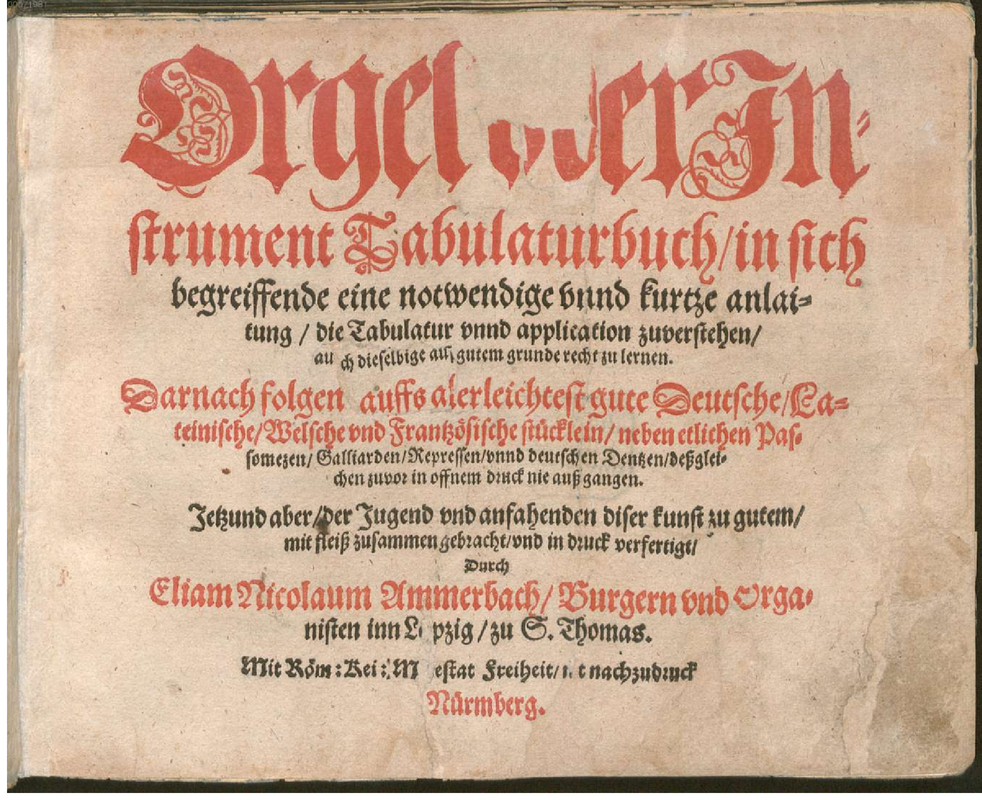 Orgel oder In-
strument Tabulaturbuch/in sich
begreiffende eine notwendige vnnd kurtze anlai-
tung / die Tabulatur vnnd application zuverstehen/
auch dieselbige auß gutem grunde recht zu lernen.
Darnach folgen auffs allerleichtest gute Deutsche/La-
teinische/Welsche vnd Frantzösische stücklein/ neben etlichen Pas-
somezen/ Galliarden/Repressen/vnnd deutschen Dentzen/deßglei-
chen zuvor in offnem druck nie außgangen.
Jetzund aber/der Jugend vnd anfahenden diser kunst zu gutem/
mit fleiß zusammen gebracht/vnd in druck verfertigt/
Durch
Eliam Nicolaum Ammerbach/ Burgern vnd Orga-
nisten inn L pzig/zu S. Thomas.
Mit Röm: Kei: M estat Freiheit/ t nachzudruck
Nürmberg.